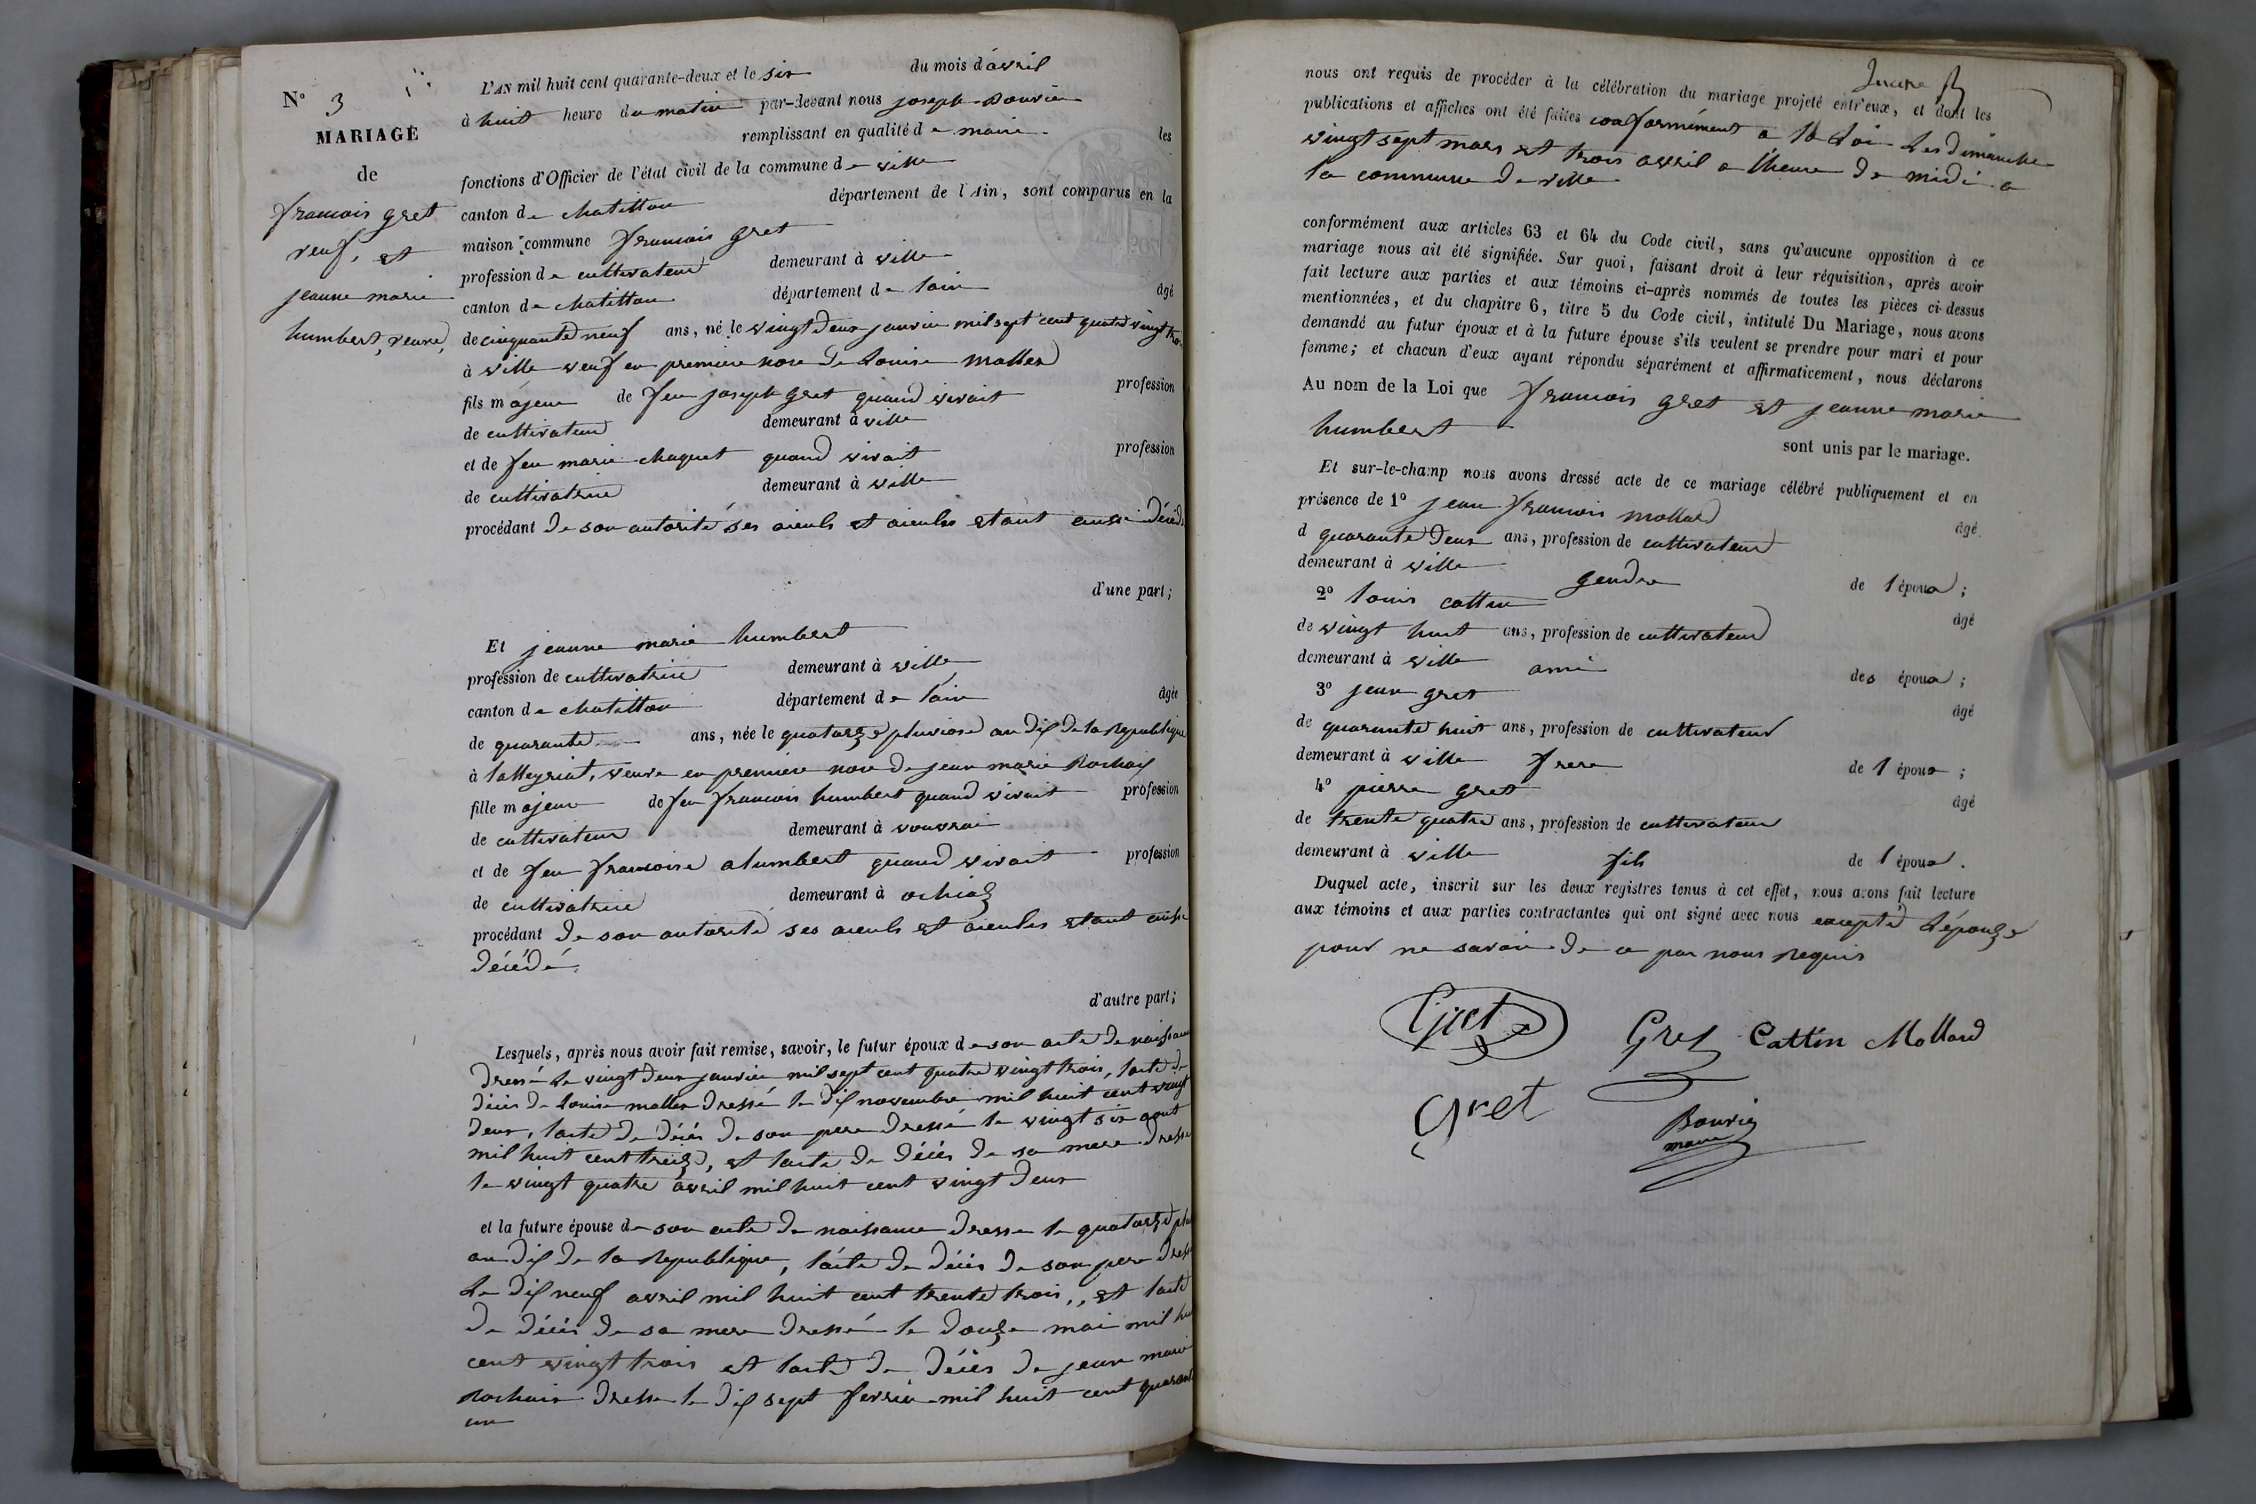 N° 3
MARIAGE
de
francois gret
veuf, et
jeanne marie
humbert, veuve,
L'AN mil huit cent quarante-deux et le six du mois d'avril
à huit heure du matin par-devant nous joseph Bouvier
remplissant en qualité de maire les
fonctions d'Officier de l'état civil de la commune de ville
canton de chatillon département de l'Ain, sont comparus en la
maison commune francois gret
profession de cultivateur demeurant à ville
canton de chatillon département de lain âgé
de cinquante neuf ans, né le vingt deux janvier mil sept cent quatre vingt
à ville veuf en premiere noce de Louise
fils majeur de feu joseph gret quand vivait profession
de cultivateur demeurant à ville
et de feu marie chaquet quand vivait profession
de cultivatrice demeurant à ville
procédant de son autorité ses aieuls et aieules etant aussi décédé
d'une part;
Et jeanne marie humbert
profession de cultivatrice demeurant à ville
canton de chatillon département de lain âgée
de quarante ans, née le quatorze pluviose an dix de la republique
à lalleyriat, veuve en premiere noce de jean marie Rochaix
fille majeur de feu francois humbert quand vivait profession
de cultivateur demeurant à vouvrai
et de feu francoise alumbert quand vivait profession
de cultivatrice demeurant à ochiaz
procédant de son autorité ses aieuls et aieules etant aussi
décédé,
d'autre part;
Lesquels, après nous avoir fait remise, savoir, le futur époux de son acte de naissance
dressé le vingt deux janvier mil sept cent quatre vingt trois, lacte de
décés de louise dressé le dix novembre mil huit cent vingt
deux, lacte de décés de son pere dressé le vingt six aout
mil huit cent treize, et lacte de décés de sa mere dressé
le vingt quatre avril mil huit cent vingt deux
et la future épouse de son acte de naissance dresse le quatorze
an dix de la republique, lácte de décés de son pere dressé
le dix neuf avril mil huit cent trente trois,, et lacte
de décés de sa mere dressé le douze mai mil
cent vingt trois et lacte de décés de jean marie
Rochaix dresse le dix sept fevrier mil huit cent quarante
un
nous ont requis de procéder à la célébration du mariage projeté entr'eux, et dont les
publications et affiches ont été faites conformément a la Loi Les dimanche
vingt sept mars et trois avril a lheure de midi a
la commune de ville
conformément aux articles 63 et 64 du Code civil, sans qu'aucune opposition à ce
mariage nous ait été signifiée. Sur quoi, faisant droit à leur réquisition, après avoir
fait lecture aux parties et aux témoins ci-après nommés de toutes les pièces ci-dessus
mentionnées, et du chapitre 6, titre 5 du Code civil, intitulé Du Mariage, nous avons
demandé au futur époux et à la future épouse s'ils veulent se prendre pour mari et pour
femme; et chacun d'eux ayant répondu séparément et affirmativement, nous déclarons
Au nom de la Loi que francois gret et jeanne marie
humbert
sont unis par le mariage.
Et sur-le-champ nous avons dressé acte de ce mariage célébré publiquement et en
présence de 1° jean francois mollard âgé
d quarante deux ans, profession de cultivateur
demeurant à ville gendre de l époux;
2° louis cattin âgé
de vingt huit ans, profession de cultivateur
demeurant à ville ami des époux;
3° jean gret âgé
de quarante huit ans, profession de cultivateur
demeurant à ville frere de l époux;
4° pierre gret âgé
de trente quatre ans, profession de cultivateur
demeurant à ville fils de l époux.
Duquel acte, inscrit sur les deux registres tenus à cet effet, nous avons fait lecture
aux témoins et aux parties contractantes qui ont signé avec nous excepté Lépouze
pour ne savoir de ce par nous requis
Gret Gret Cattin Mollard
Gret Bouvier
maire